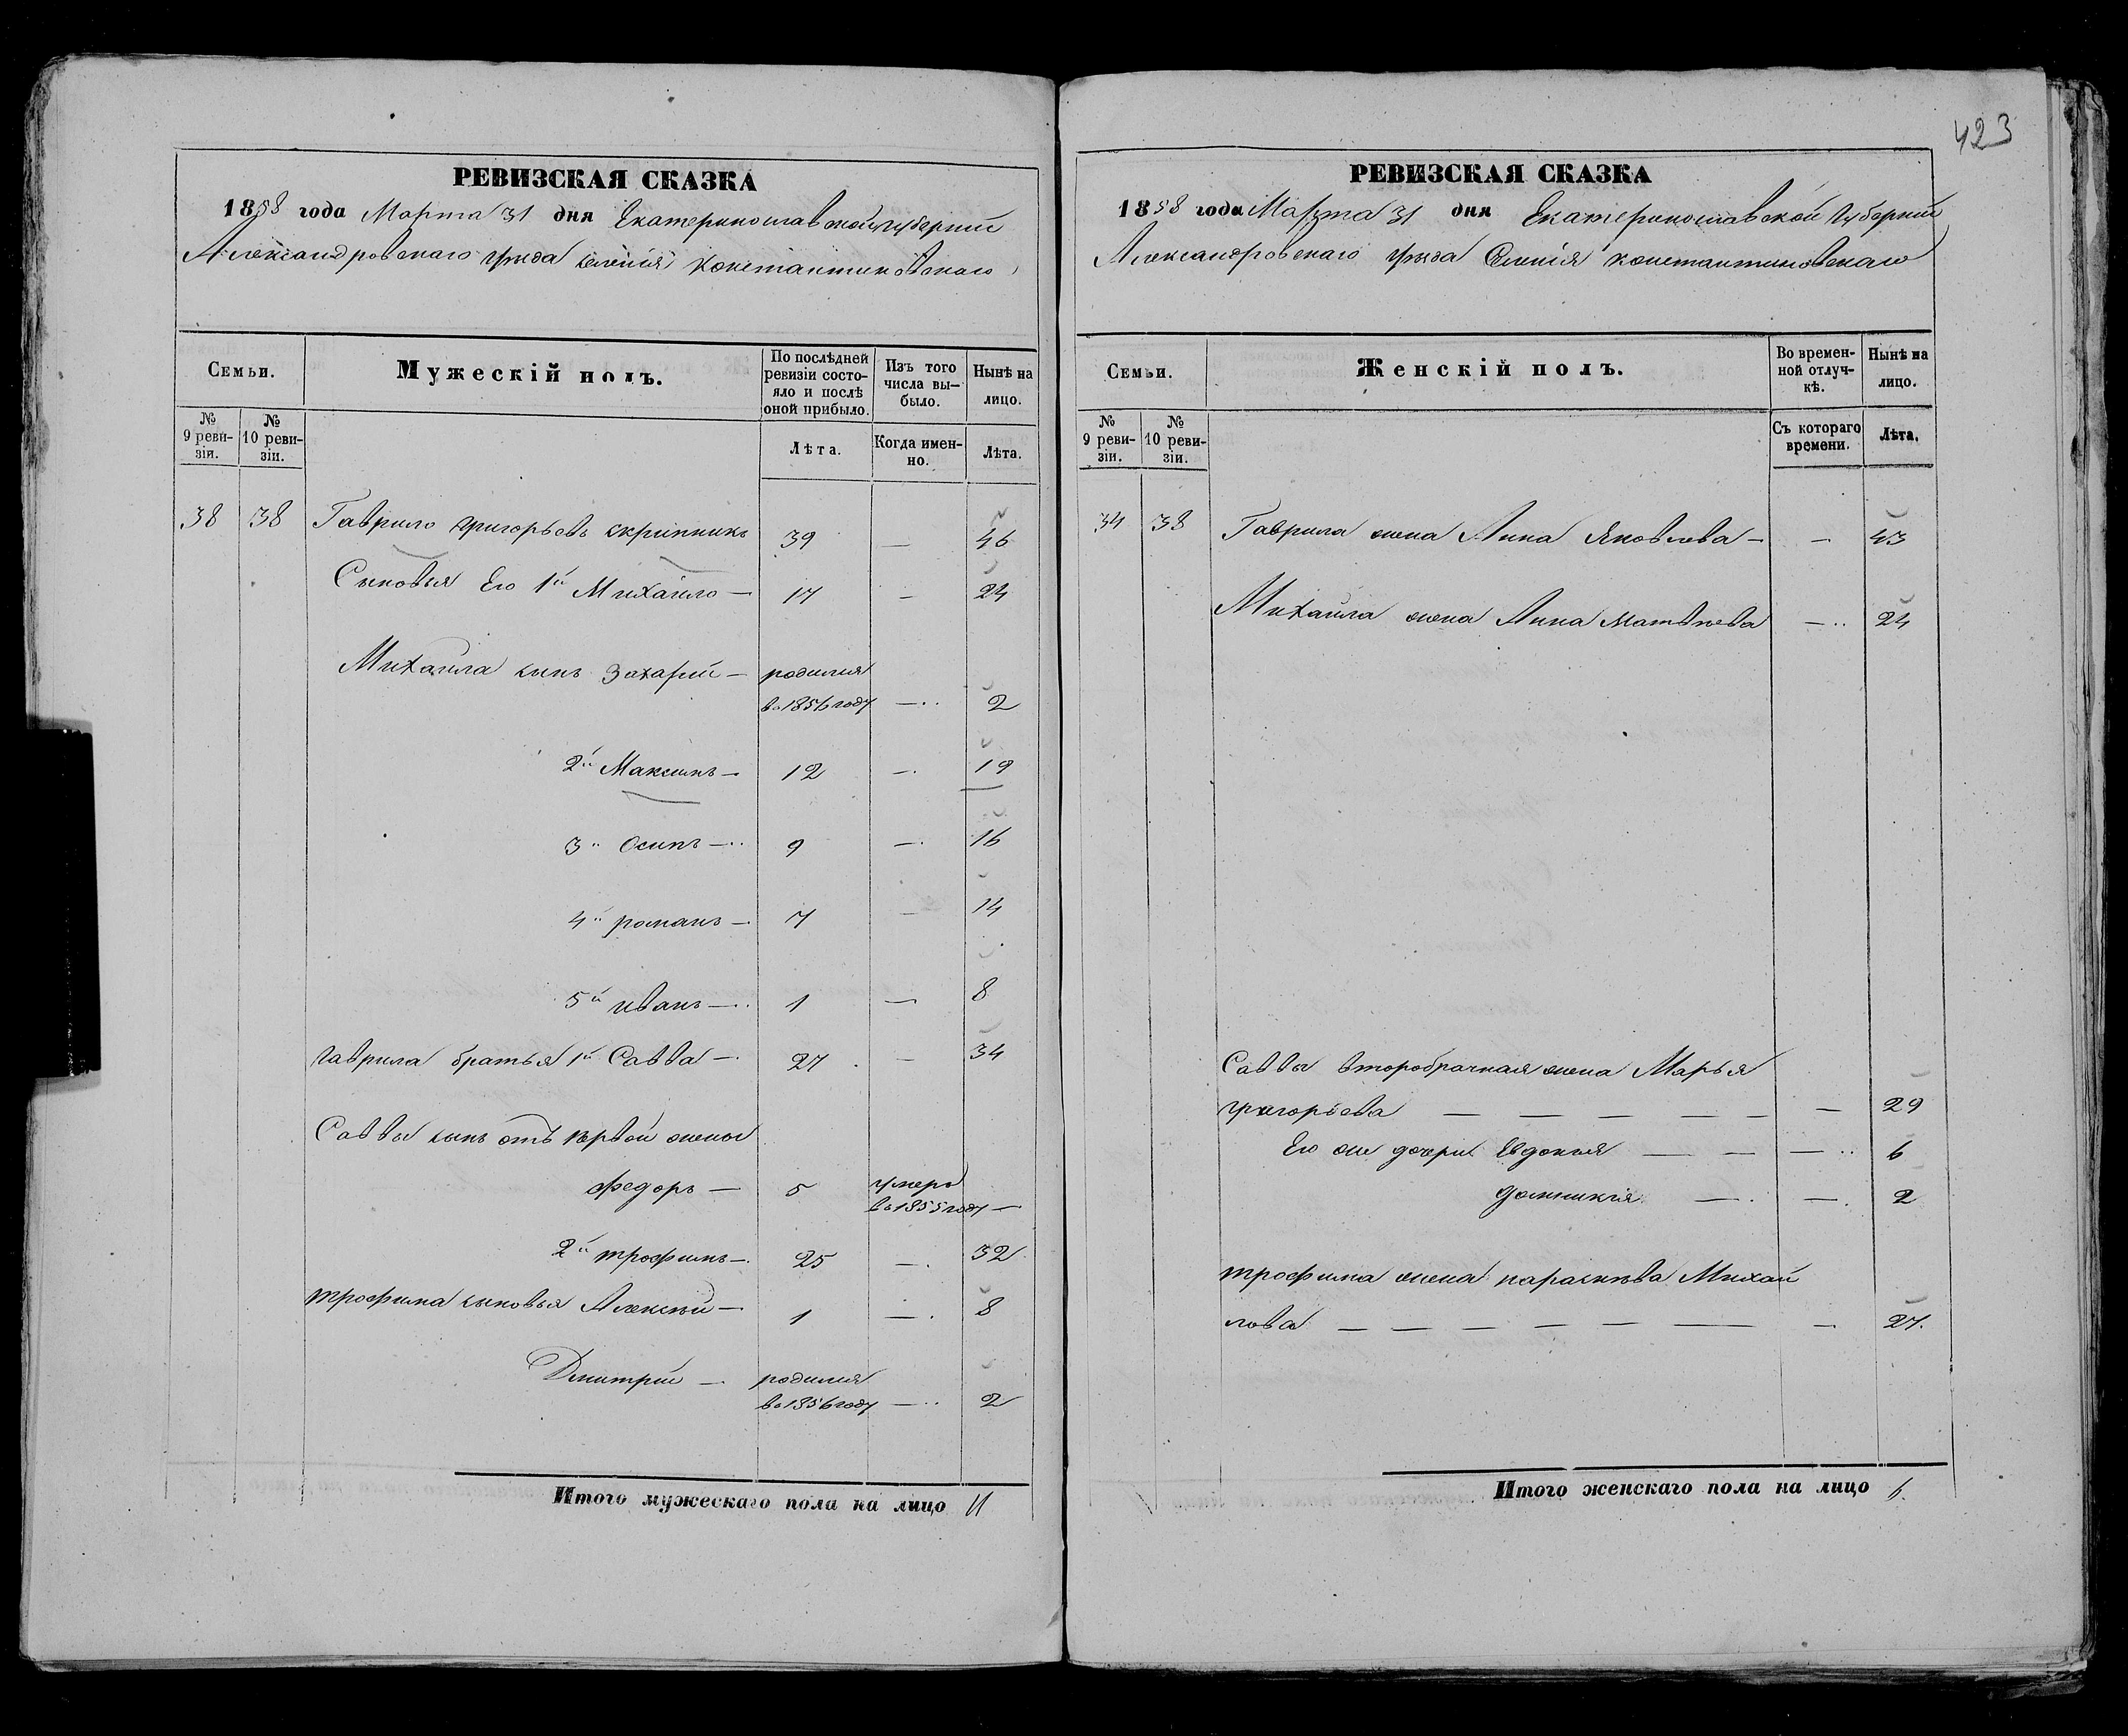 423
РЕВИЗСКАЯ СКАЗКА
1858 года Марта 31 дня Екатеринославской губернии
Александровскаго уезда селения Константиновскаго
Семьи.
Мужескій полъ.
По послѣдней ревизіи состояло и послѣ оной прибыло.
Изъ того числа выбыло.
Нынѣ на лицо.
№ 9 ревизіи.
№ 10 ревизіи.
Лѣта.
Когда именно.
Лѣта.
38 38 Гаврило Григорьевъ скрипникъ 39 — 46
Сыновья Его 1й Михайло — 17 — 24
Михайла сынъ Захарій — родился
въ 1856 году — 2
2й Максимъ — 12 — 19
3й Осипъ — 9 — 16
4й романъ — 7 — 14
5й иванъ — 1 — 8
гаврила братья 1й Савва — 27 — 34
Саввы сынъ отъ первой жены
федоръ — 5 умеръ
въ 1855 году —
2й трофимъ — 25 — 32
трофима сыновья Алексѣй — 1 — 8
Дмитрій — родился
въ 1856 году — 2
Итого мужескаго пола на лицо 11
РЕВИЗСКАЯ СКАЗКА
1858 года Марта 31 дня Екатеринославской губернии
Александровскаго уезда Селения константиновскаго
Семьи.
Женскій полъ.
Во временной отлучкѣ.
Нынѣ на лицо.
№ 9 ревизіи.
№ 10 ревизіи.
Съ котораго времени.
Лѣта.
34 38 Гаврила жена Анна Яковлева — — 43
Михайла жена Анна матвѣева — 24
Саввы второбрачная жена Марья
григорьева — — — — — — 29
Его же дочери Евдокия — — — 6
домникия — — 2
трофима жена параскѣва Михай
лова — — — — — — — 27.
Итого женскаго пола на лицо 6.